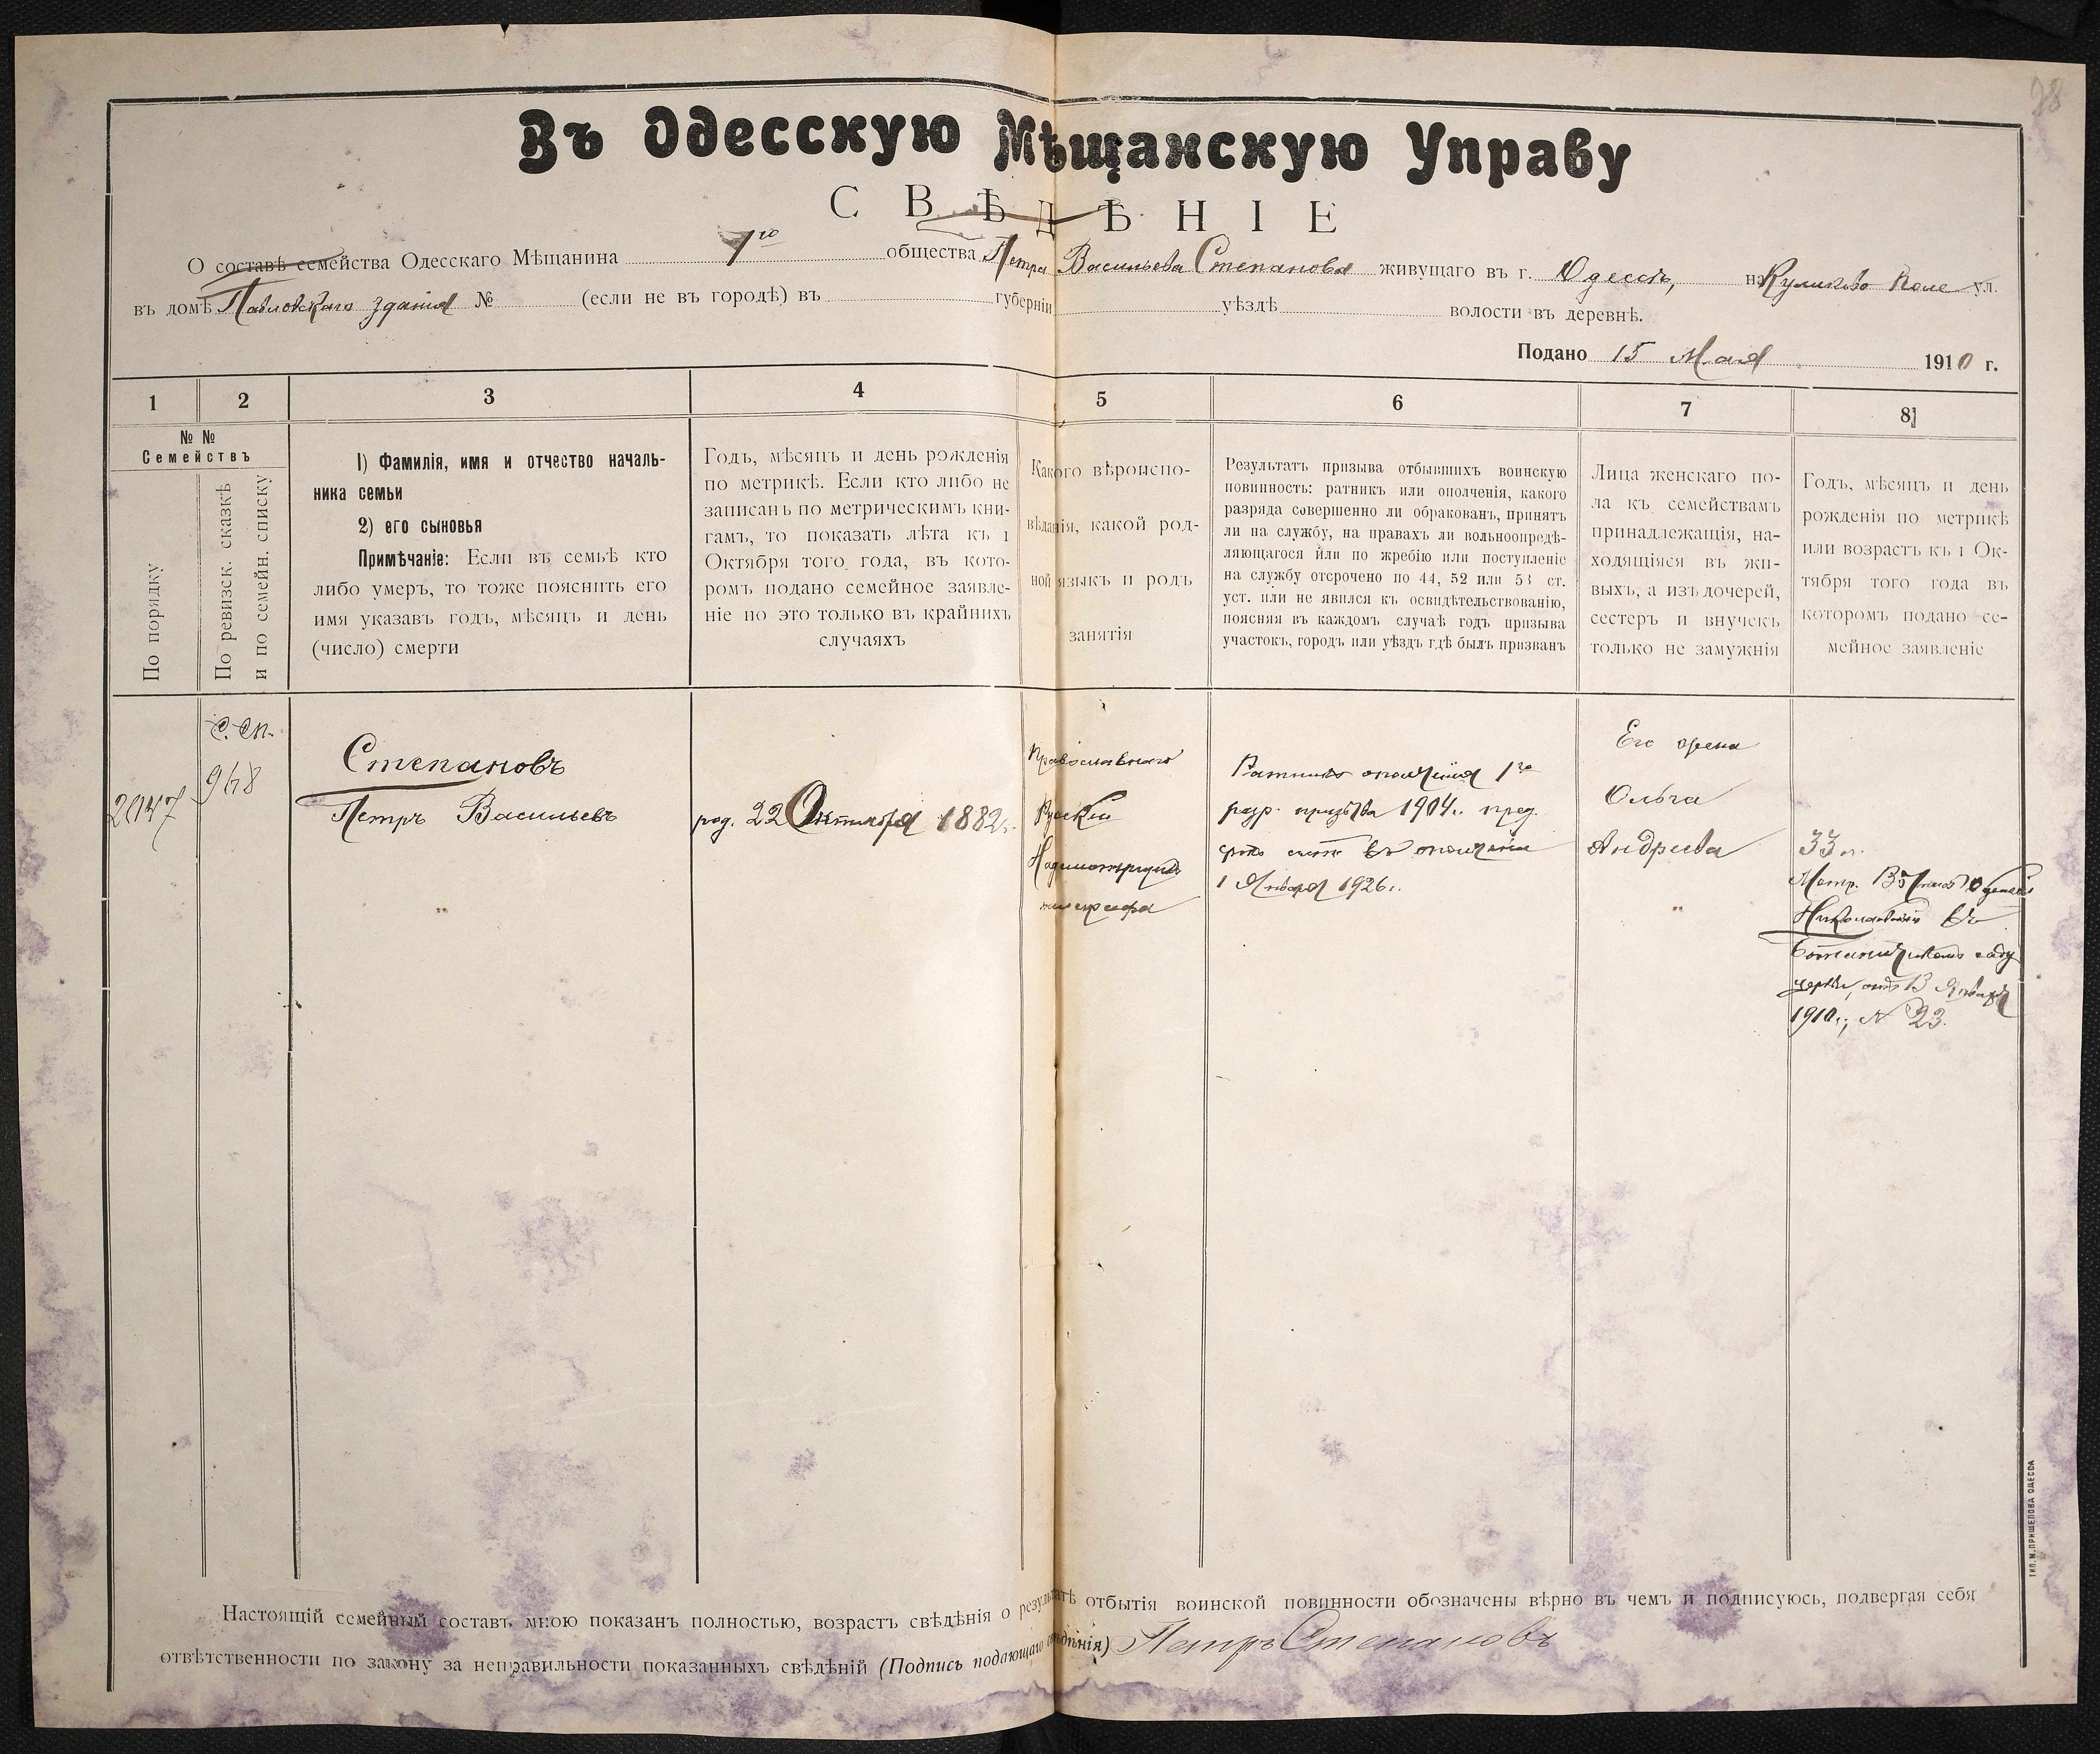 38
Въ Одесскую Мѣщанскую Управу
СВѢДѢНІЕ
О составѣ семейства Одесскаго Мѣщанина 1го общества Петра Васильева Степанова живущаго въ г. Одессѣ, на Куликово поле ул.
въ домѣ Павловскаго зданія № (если не въ городѣ) въ губерніи уѣздѣ волости въ деревнѣ.
Подано 15 Мая 1910 г.
1 2 3 4 5 6 7 8
№ №
Семействъ
По порядку
По ревизск. сказкѣ
и по семейн. списку
1) Фамилія, имя и отчество началь-
ника семьи
2) его сыновья
Примѣчаніе: Если въ семьѣ кто
либо умеръ, то тоже пояснить его
имя указавъ годъ, мѣсяцъ и день
(число) смерти
Годъ, мѣсяцъ и день рожденія
по метрикѣ. Если кто либо не
записанъ по метрическимъ кни-
гамъ, то показать лѣта къ 1
Октября того года, въ кото-
ромъ подано семейное заявле-
ніе но это только въ крайнихъ
случаяхъ
Какого вѣроиспо-
вѣданія, какой род-
ной языкъ и родъ
занятія
Результатъ призыва отбывшихъ воинскую
повинность: ратникъ или ополченія, какого
разряда совершенно ли обракованъ, принятъ
ли на службу, на правахъ ли вольноопредѣ-
ляющагося или по жребію или поступленіе
на службу отсрочено по 44, 52 или 53 ст.
уст. или не явился къ освидѣтельствованію,
поясняя въ каждомъ случаѣ годъ призыва
участокъ, городъ или уѣздъ гдѣ былъ призванъ
Лица женскаго по-
ла къ семействамъ
принадлежащія, на-
ходящіяся въ жи-
выхъ, а изъ дочерей,
сестеръ и внучекъ
только не замужнія
Годъ, мѣсяцъ и день
рожденія по метрикѣ
или возрастъ къ 1 Ок-
тября того года въ
которомъ подано се-
мейное заявленіе
2047
С. сп.
968
Степановъ
Петръ Васильевъ
род. 22 Октября 1882г.
Православнаго
Русскій
Надсмотрщикъ
телеграфа
Ратникъ ополченія 1го
разр. призыва 1904г. пред.
срокъ сост. въ ополченіи
1 Января 1926г.
Его жена
Ольга
Андреева
33 л.
Метр. Одесской
Николаевской въ
Ботаническомъ саду
церкви, отъ 13 Января
1910г., № 23.
Настоящій семейный составъ мною показанъ полностью, возрастъ свѣдѣнія о результатѣ отбытія воинской повинности обозначены вѣрно въ чемъ и подписуюсь, подвергая себя
отвѣтственности по закону за неправильности показанныхъ свѣдѣній (Подпись подающаго свѣдѣнія) Петръ Степановъ
ТИП. М. ПРИЩЕПОВА ОДЕССА